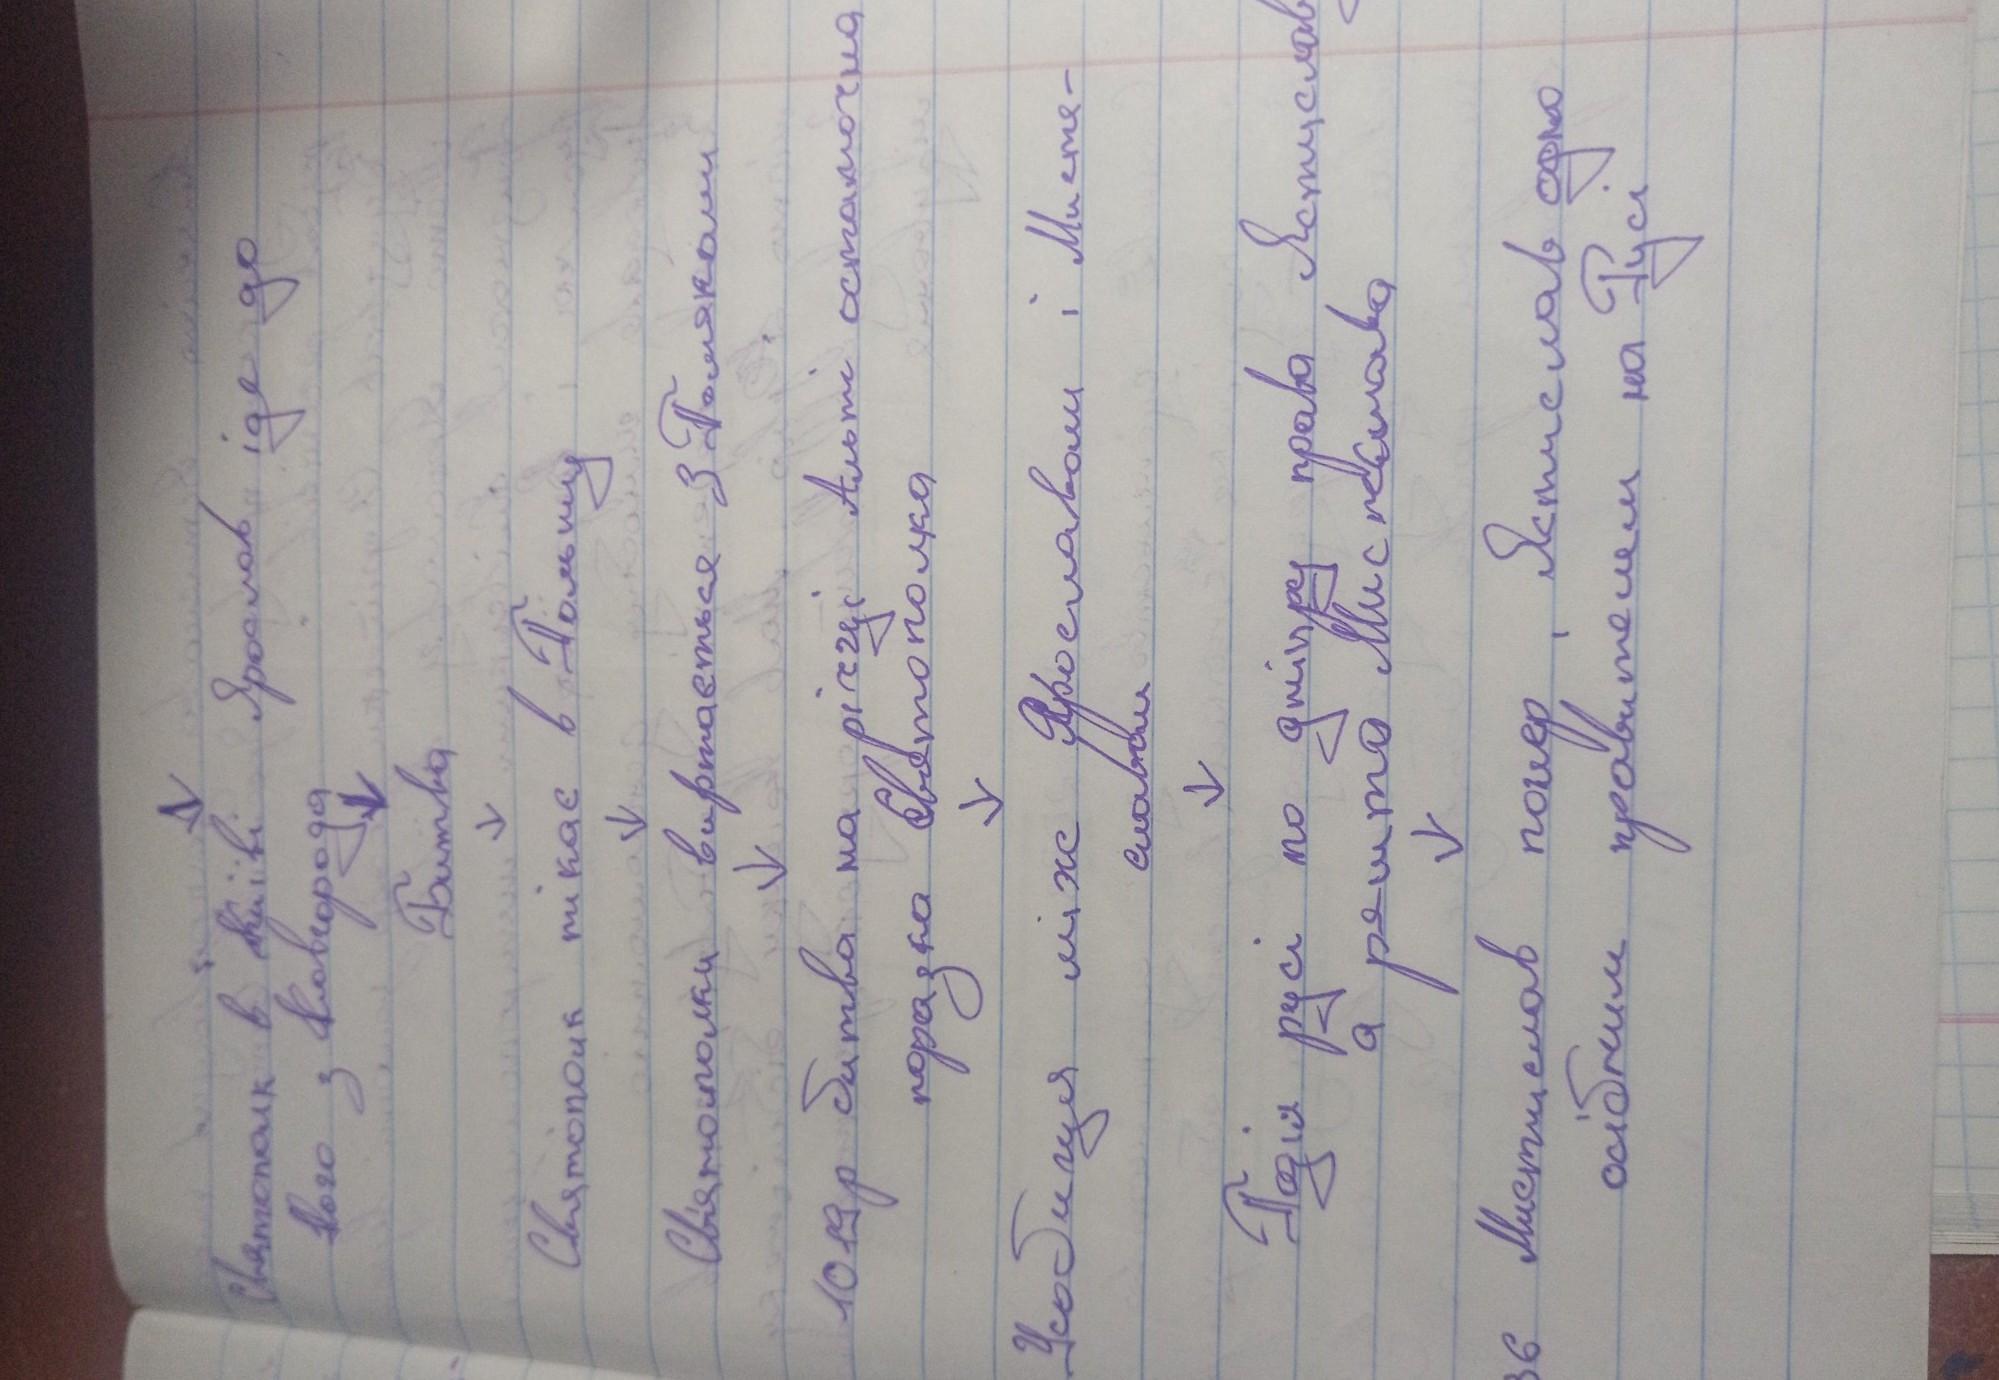 Святополк в Києві Ярослав іде до
його з Новгорода
Битва
Святополк тікає в Польщу
Святополк виртається з Поляками
1019р битва на річці Альті остаточна
поразка Святополка
Усобиця між Ярославом і Мсти-
славом
Поділ русі по дніпру права Мстислава
а решта
36 Мистислав помер, одно
осібним правителем на Русі